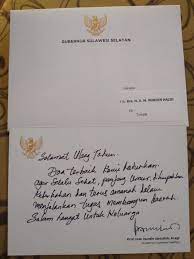 GUBERNUR SULAWESI SELATAN
di -
Tempat
Selamat Ulang Tahun.
Doa terbaik Kami haturkan
agar selalu sehat, panjang umur, dilimpahkan
keberkahan dan terus amanah dalam
menjalankan tugas membangun daerah.
Salam hangat untuk keluarga